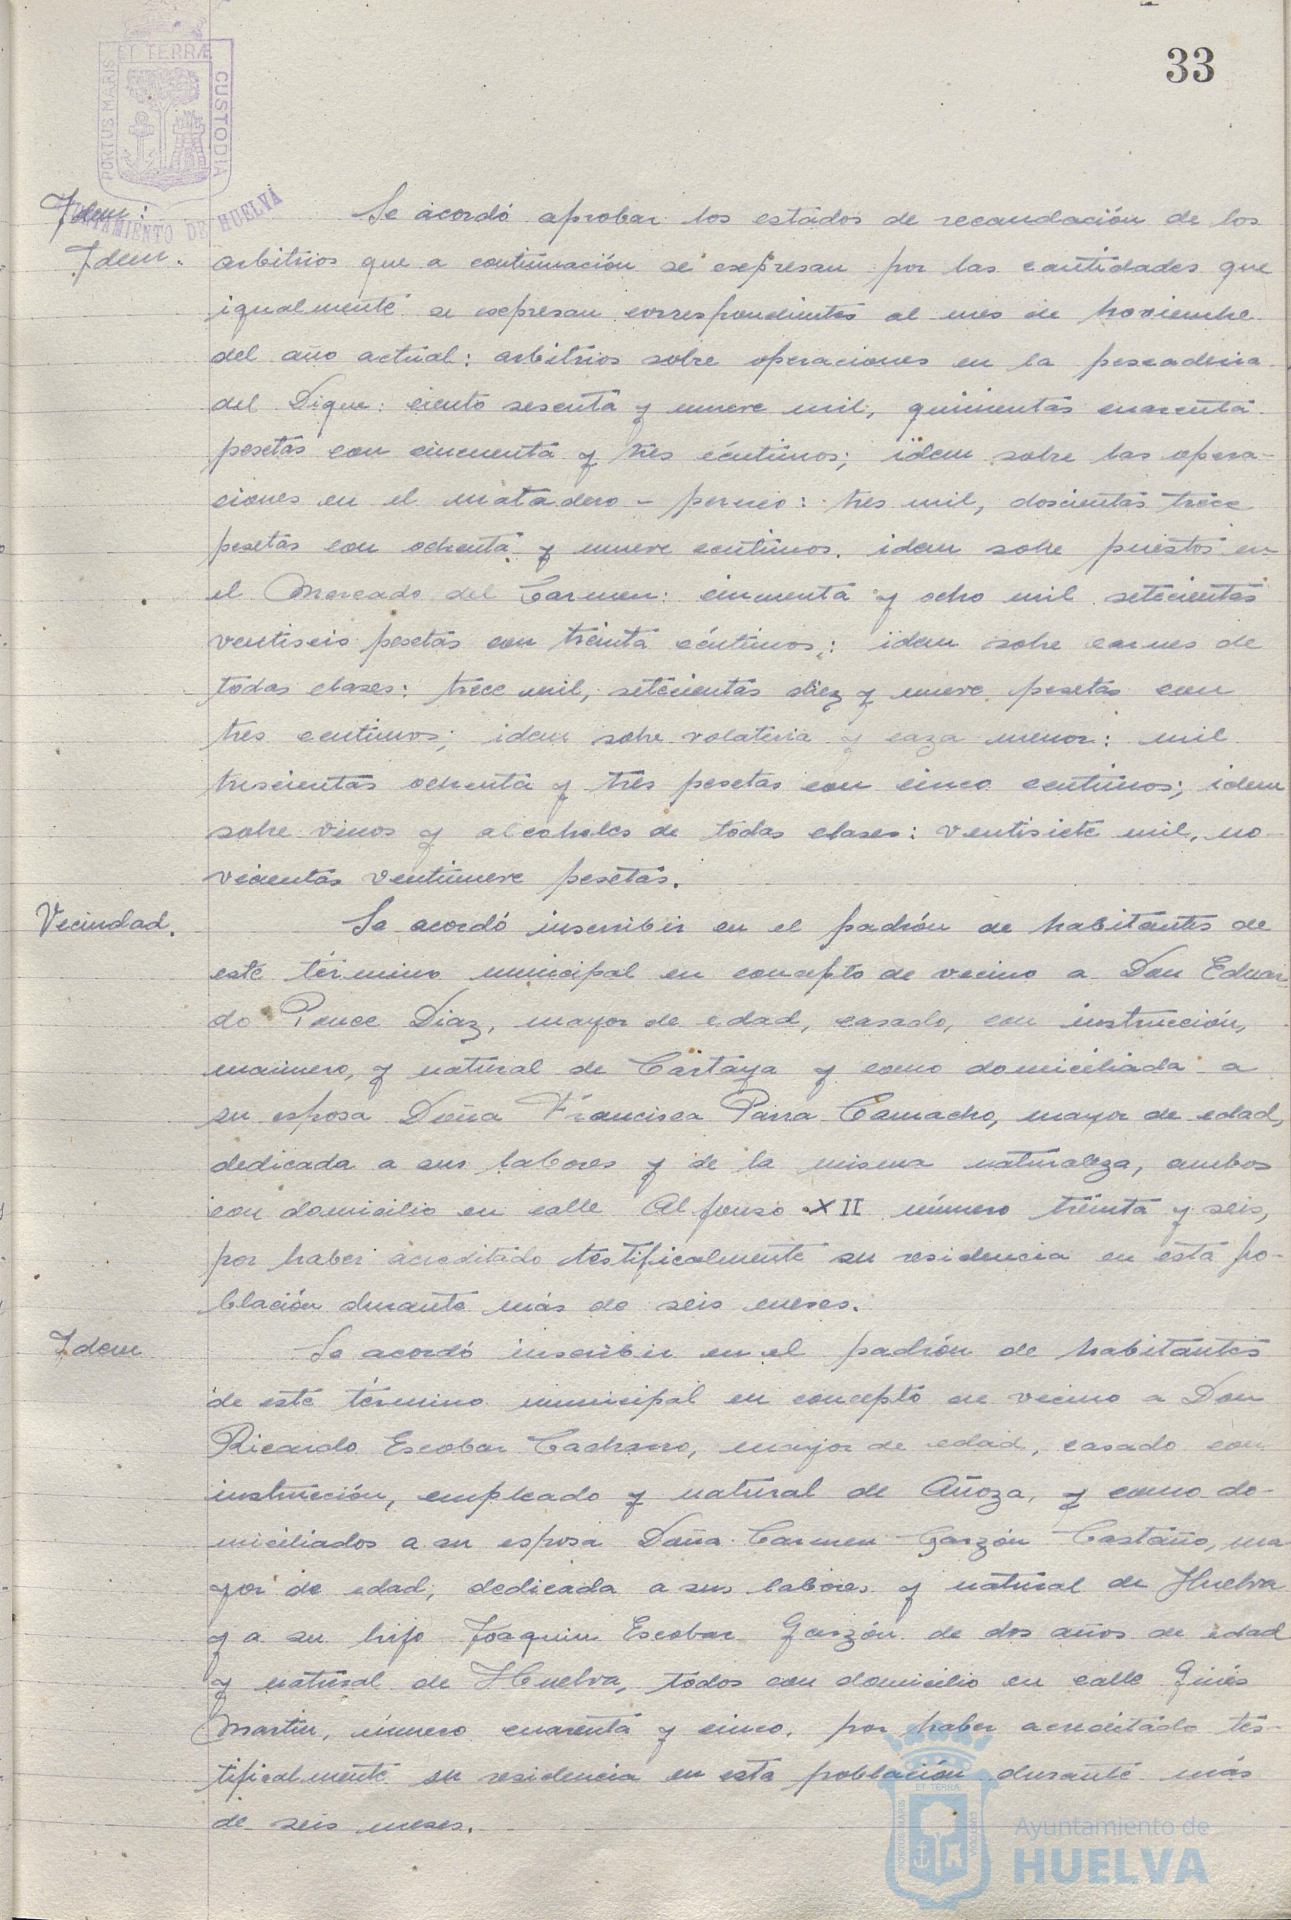 33
PORTUS MARIS ET TERRÆ CUSTODIA
AYUNTAMIENTO DE HUELVA
Idem: Se acordó aprobar los estados de recaudación de los
Idem. arbitrios que a continuación se expresan por las cantidades que
igualmente se expresan correspondientes al mes de noviembre
del año actual: arbitrios sobre operaciones en la pescaderia
del Dique: ciento sesenta y nueve mil, quinientas cuarenta
pesetas con cincuenta y tres céntimos; idem sobre las opera-
ciones en el matadero - perneo: tres mil, doscientas trece
pesetas con ochenta y nueve centimos. idem sobre puestos en
el Mercado del Carmen: cincuenta y ocho mil setecientas
ventiseis pesetas con treinta céntimos,: idem sobre carnes de
todas clases: trece mil, setecientas diez y nueve pesetas con
tres centimos; idem sobre volateria y caza menor: mil
trescientas ochenta y tres pesetas con cinco centimos; idem
sobre vinos y alcoholes de todas clases: ventisiete mil, no-
vecientas ventinueve pesetas.
Vecindad. Se acordó inscribir en el padrón de habitantes de
este término municipal en concepto de vecino a Don Eduar-
do Ponce Diaz, mayor de edad, casado, con instrucción,
marinero, y natural de Cartaya y como domiciliada a
su esposa Doña Francisca Parra Camacho, mayor de edad,
dedicada a sus labores y de la misma naturaleza, ambos
con domicilio en calle Alfonso XII número treinta y seis,
por haber acreditado testificalmente su residencia en esta po-
blación durante más de seis meses.
Idem Se acordó inscribir en el padrón de habitantes
de este término municipal en concepto de vecino a Don
Ricardo Escobar, mayor de edad, casado con
instrucción, empleado y natural de, y como do-
miciliados a su esposa Doña Carmen Garzón Castaño, ma
yor de edad, dedicada a sus labores y natural de Huelva
y a su hijo Joaquin Escobar Garzón de dos años de edad
y natural de Huelva, todos con domicilio en calle Ginés
Martin, número cuarenta y cinco, por haber acreditado tes-
tificalmente su residencia en esta población durante más
de seis meses.
PORTUS MARIS ET TERRÆ CUSTODIA
Ayuntamiento de
HUELVA